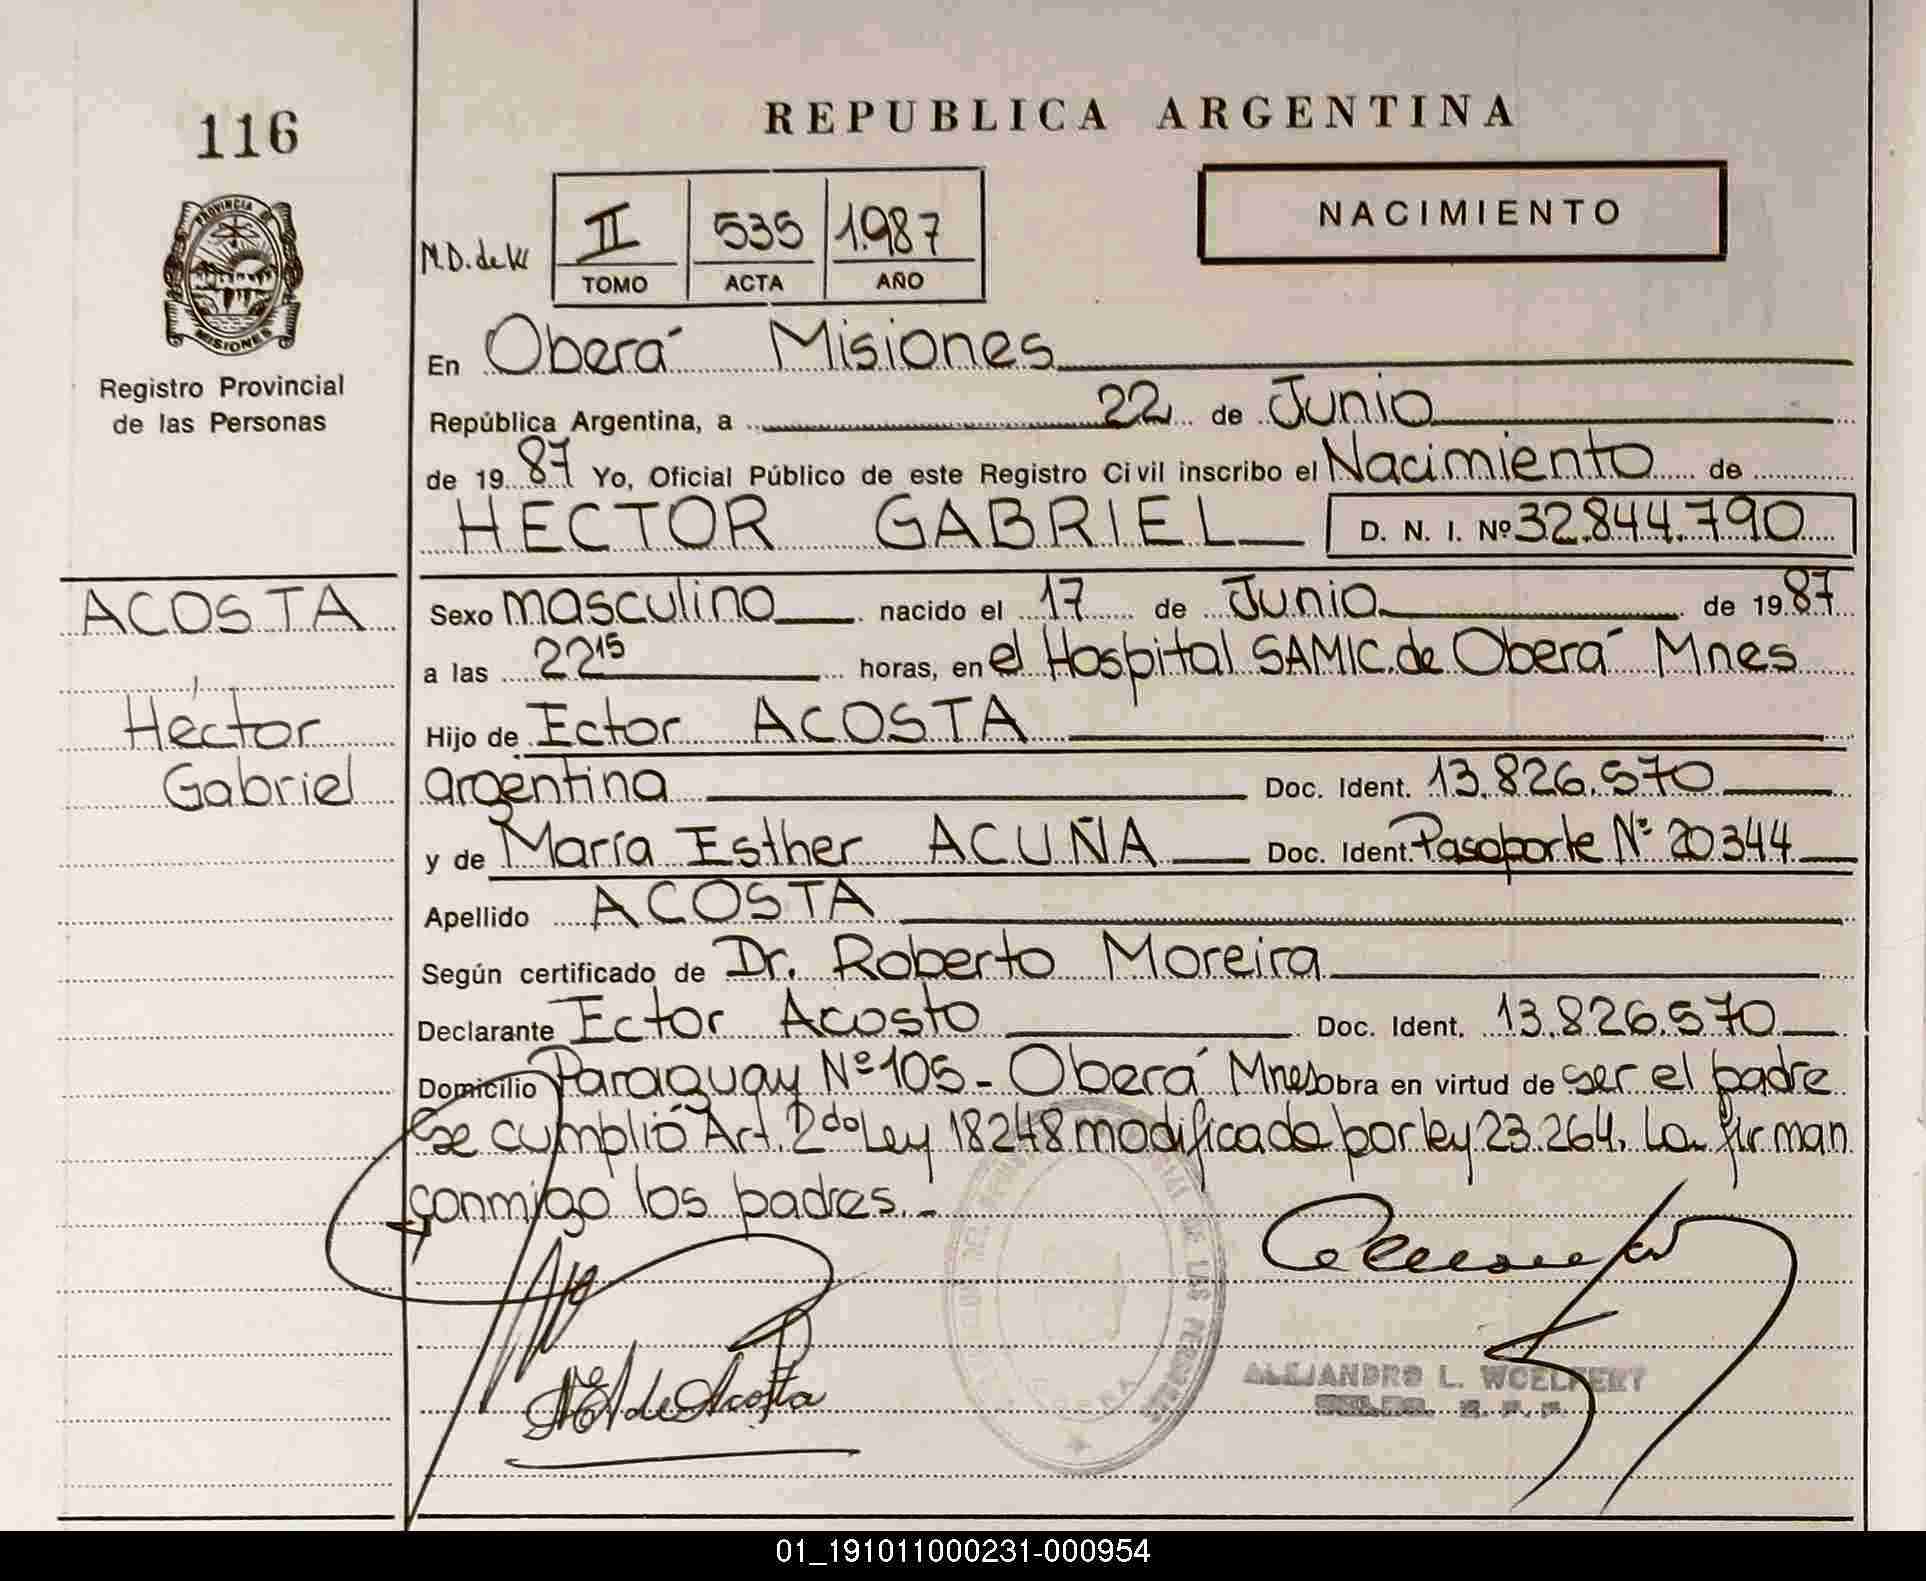 116
REPUBLICA ARGENTINA
NACIMIENTO
PROVINCIA DE
MISIONES
Registro Provincial
de las Personas
M.D. de
II 535 1.987
TOMO ACTA AÑO
En Oberá Misiones
República Argentina, a 22 de Junio
de 19 87 Yo, Oficial Público de este Registro Civil inscribo el Nacimiento de
HECTOR GABRIEL D. N. I. Nº 32.844.790
ACOSTA
Héctor
Gabriel
Sexo masculino nacido el 17 de Junio de 19 87
a las 22 15 horas, en el Hospital SAMIC. de Oberá Mnes
Hijo de Ector ACOSTA
argentina Doc. Ident. 13.826.570
y de María Esther ACUÑA Doc. Ident. Pasaporte Nº 20344
Apellido ACOSTA
Según certificado de Dr. Roberto Moreira
Declarante Ector Acosto Doc. Ident. 13.826.570
Domicilio Paraguay Nº 105 - Oberá Mnes obra en virtud de ser el padre
Se cumplió Art. 2do Ley 18248 modificada por ley 23.264. La firman
conmigo los padres. -
M E A de Acosta
DE LAS PERSONAS
ALEJANDRO L. WOELFERT
01_191011000231-000954